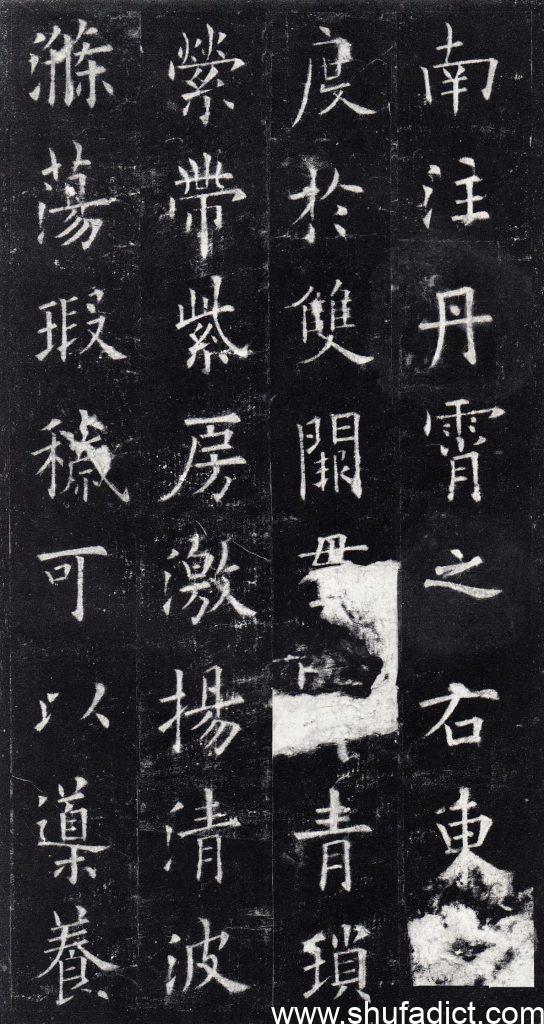 南注丹霄之右東
度於雙闕貫青瑣
縈帶紫房激揚清波
滌蕩瑕穢可以導養
www.shufadict.com